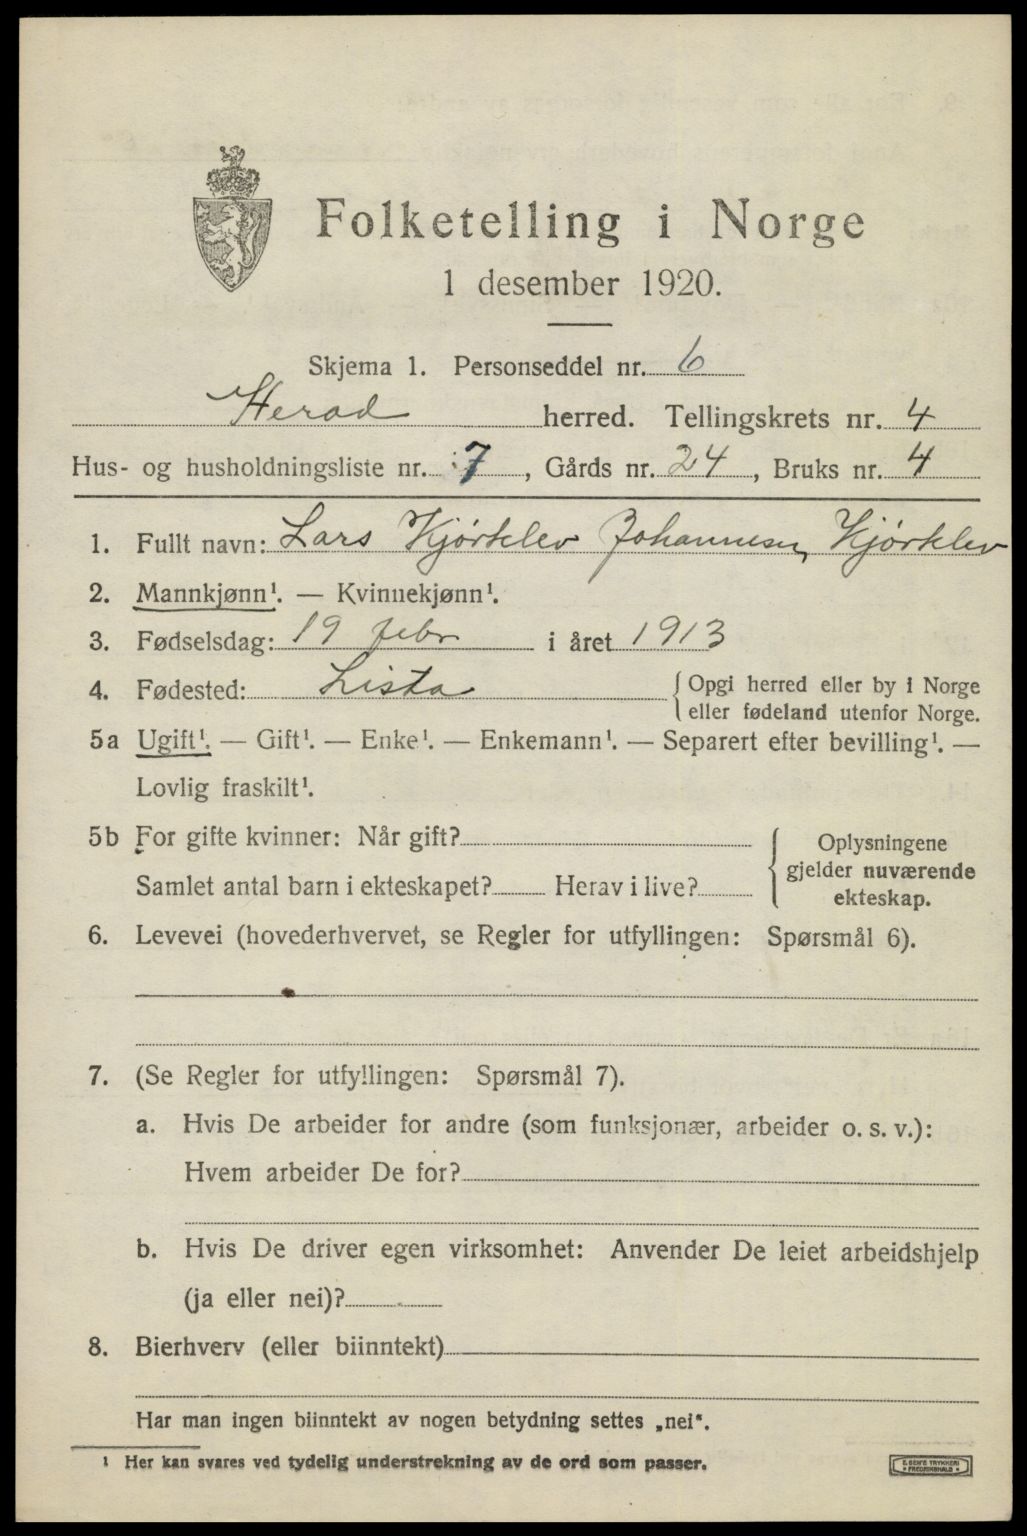 Folketelling i Norge
1 desember 1920.
Skjema 1. Personseddel nr. 6
Herad herred. Tellingskrets nr. 4
Hus- og husholdningsliste nr. 7, Gårds nr. 24, Bruks nr. 4
1. Fullt navn: Lars Kjørklev Johannesen Kjørklev
2. Mannkjønn¹. — Kvinnekjønn¹.
3. Fødselsdag: 19 febr i året 1913
4. Fødested: Lista { Opgi herred eller by i Norge
eller fødeland utenfor Norge.
5a Ugift¹. — Gift¹. — Enke¹. — Enkemann¹. — Separert efter bevilling¹. —
Lovlig fraskilt¹.
5b For gifte kvinner: Når gift? { Oplysningene
gjelder nuværende
Samlet antal barn i ekteskapet? Herav i live?
ekteskap.
6. Levevei (hovederhvervet, se Regler for utfyllingen: Spørsmål 6).
7. (Se Regler for utfyllingen: Spørsmål 7).
a. Hvis De arbeider for andre (som funksjonær, arbeider o. s. v.):
Hvem arbeider De for?
b. Hvis De driver egen virksomhet: Anvender De leiet arbeidshjelp
(ja eller nei)?
8. Bierhverv (eller biinntekt)
Har man ingen biinntekt av nogen betydning settes „nei".
¹ Her kan svares ved tydelig understrekning av de ord som passer.